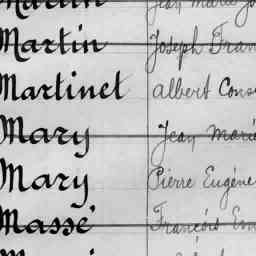 Martin Joseph Fran
Martinet Albert Cons
Mary Jean Marie
Mary Pierre Eugène
Massé François Em